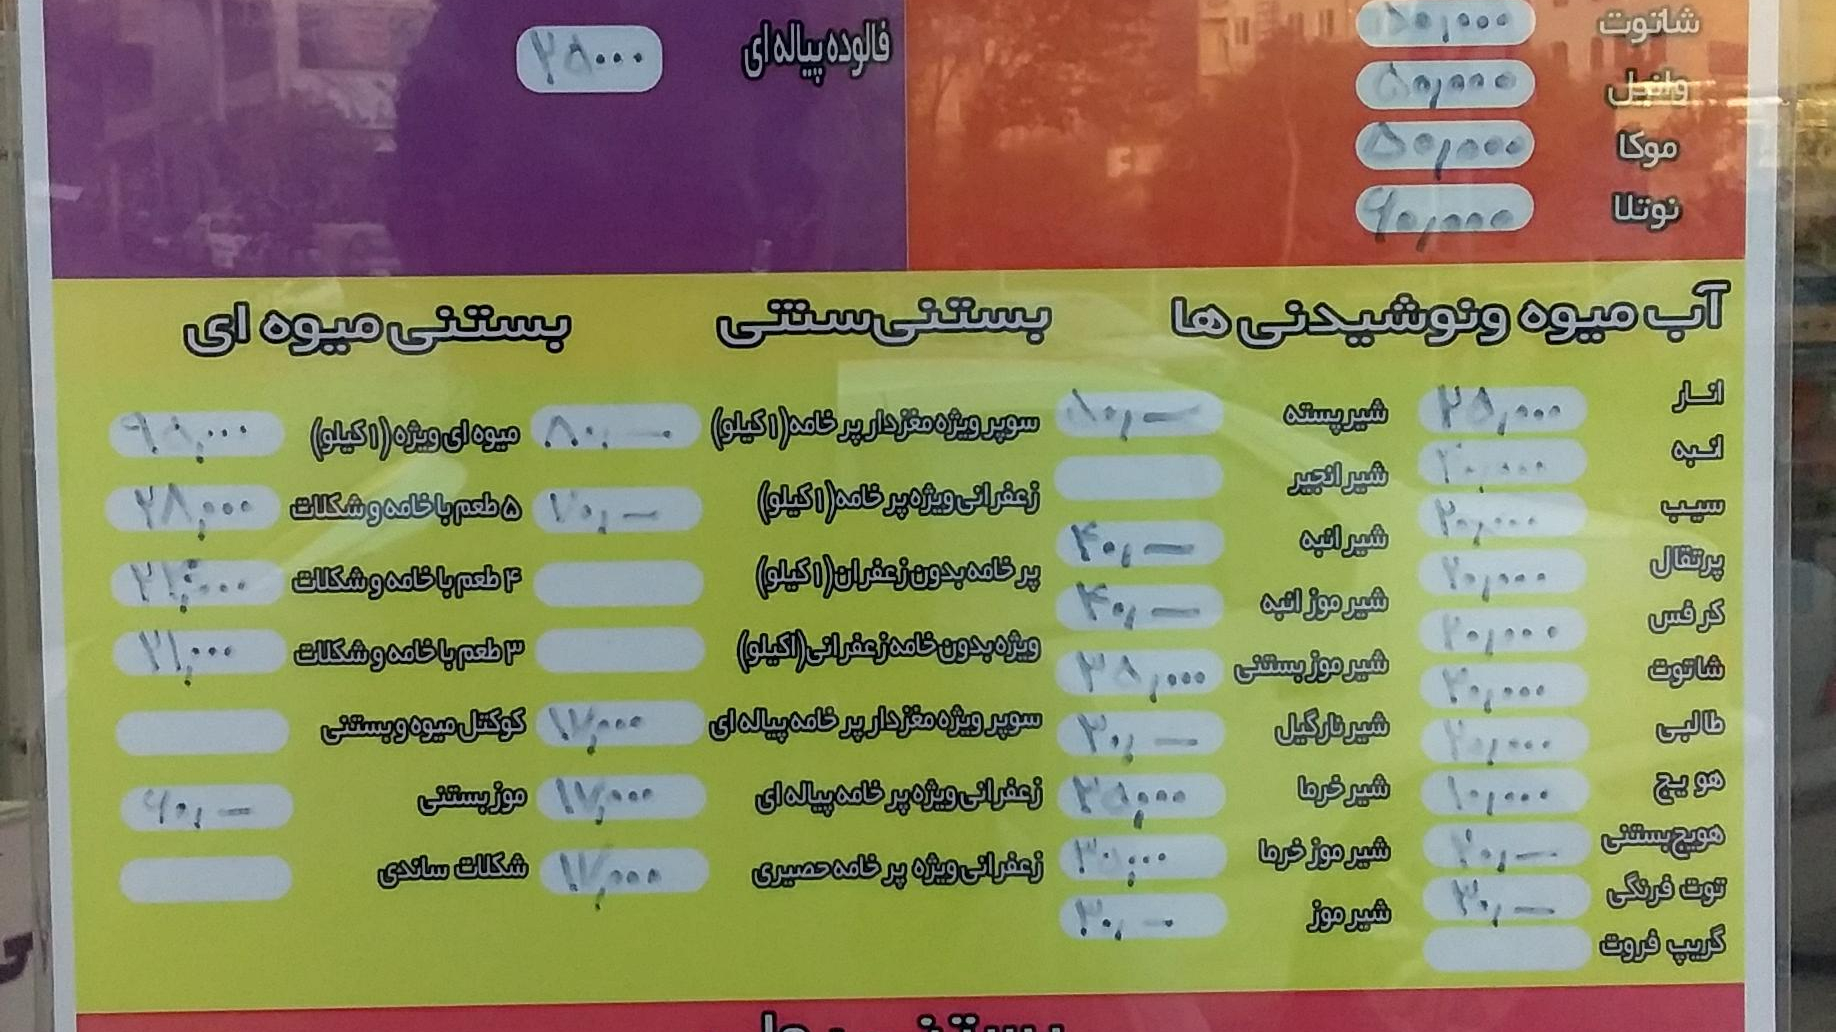 شاتوت ۵۰,۰۰۰
وانیل ۵۰,۰۰۰
موکا ۵۰,۰۰۰
نوتلا ۶۰,۰۰۰
فالوده پیاله ای ۲۵۰۰۰
آب میوه ونوشیدنی ها
انار ۲۵,۰۰۰
انبه ۲۰,۰۰۰
سیب ۲۰,۰۰۰
پرتقال ۲۰,۰۰۰
کرفس ۲۰,۰۰۰
شاتوت ۲۰,۰۰۰
طالبی ۲۰,۰۰۰
هویج ۱۰,۰۰۰
هویج بستنی ۲۰,—
توت فرنگی ۳۰,—
گریپ فروت
شیر پسته ۸۰,—
شیر انجیر
شیر انبه ۴۰,—
شیر موز انبه ۴۰,—
شیر موز بستنی ۳۵,۰۰۰
شیر نارگیل ۳۰,—
شیر خرما ۲۵,۰۰۰
شیر موز خرما ۳۵,۰۰۰
شیر موز ۳۰,—
بستنی سنتی
سوپر ویژه مغزدار پر خامه (۱ کیلو) ۸۰,—
زعفرانی ویژه پر خامه (۱ کیلو) ۷۰,—
پر خامه بدون زعفران (۱ کیلو)
ویژه بدون خامه زعفرانی (۱کیلو)
سوپر ویژه مغزدار پر خامه پیاله ای ۱۷,۰۰۰
زعفرانی ویژه پر خامه پیاله ای ۱۷,۰۰۰
زعفرانی ویژه پر خامه حصیری ۱۷,۰۰۰
بستنی میوه ای
میوه ای ویژه (۱ کیلو) ۹۵,۰۰۰
۵ طعم با خامه و شکلات ۲۸,۰۰۰
۴ طعم با خامه و شکلات ۲۴,۰۰۰
۳ طعم با خامه و شکلات ۲۱,۰۰۰
کوکتل میوه و بستنی
موز بستنی ۶۰,—
شکلات ساندی